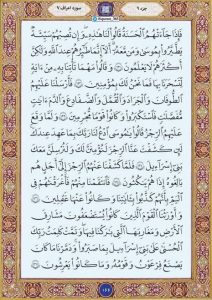 جزء ۹
سوره اعراف ۷
فَإِذَا جَآءَتْهُمُ ٱلْحَسَنَةُ قَالُوا۟ لَنَا هَٰذِهِۦ وَإِن تُصِبْهُمْ سَيِّئَةٌ
يَطَّيَّرُوا۟ بِمُوسَىٰ وَمَن مَّعَهُۥٓ أَلَآ إِنَّمَا طَٰٓئِرُهُمْ عِندَ ٱللَّهِ وَلَٰكِنَّ
أَكْثَرَهُمْ لَا يَعْلَمُونَ ١٣١ وَقَالُوا۟ مَهْمَا تَأْتِنَا بِهِۦ مِنْ ءَايَةٍ
لِّتَسْحَرَنَا بِهَا فَمَا نَحْنُ لَكَ بِمُؤْمِنِينَ ١٣٢ فَأَرْسَلْنَا عَلَيْهِمُ
ٱلطُّوفَانَ وَٱلْجَرَادَ وَٱلْقُمَّلَ وَٱلضَّفَادِعَ وَٱلدَّمَ ءَايَٰتٍ
مُّفَصَّلَٰتٍ فَٱسْتَكْبَرُوا۟ وَكَانُوا۟ قَوْمًا مُّجْرِمِينَ ١٣٣ وَلَمَّا وَقَعَ
عَلَيْهِمُ ٱلرِّجْزُ قَالُوا۟ يَٰمُوسَى ٱدْعُ لَنَا رَبَّكَ بِمَا عَهِدَ عِندَكَ
لَئِن كَشَفْتَ عَنَّا ٱلرِّجْزَ لَنُؤْمِنَنَّ لَكَ وَلَنُرْسِلَنَّ مَعَكَ
بَنِىٓ إِسْرَٰٓءِيلَ ١٣٤ فَلَمَّا كَشَفْنَا عَنْهُمُ ٱلرِّجْزَ إِلَىٰٓ أَجَلٍ هُم
بَٰلِغُوهُ إِذَا هُمْ يَنكُثُونَ ١٣٥ فَٱنتَقَمْنَا مِنْهُمْ فَأَغْرَقْنَٰهُمْ فِى
ٱلْيَمِّ بِأَنَّهُمْ كَذَّبُوا۟ بِـَٔايَٰتِنَا وَكَانُوا۟ عَنْهَا غَٰفِلِينَ ١٣٦
وَأَوْرَثْنَا ٱلْقَوْمَ ٱلَّذِينَ كَانُوا۟ يُسْتَضْعَفُونَ مَشَٰرِقَ
ٱلْأَرْضِ وَمَغَٰرِبَهَا ٱلَّتِى بَٰرَكْنَا فِيهَا وَتَمَّتْ كَلِمَتُ رَبِّكَ
ٱلْحُسْنَىٰ عَلَىٰ بَنِىٓ إِسْرَٰٓءِيلَ بِمَا صَبَرُوا۟ وَدَمَّرْنَا مَا كَانَ
يَصْنَعُ فِرْعَوْنُ وَقَوْمُهُۥ وَمَا كَانُوا۟ يَعْرِشُونَ ١٣٧
۱۶۶